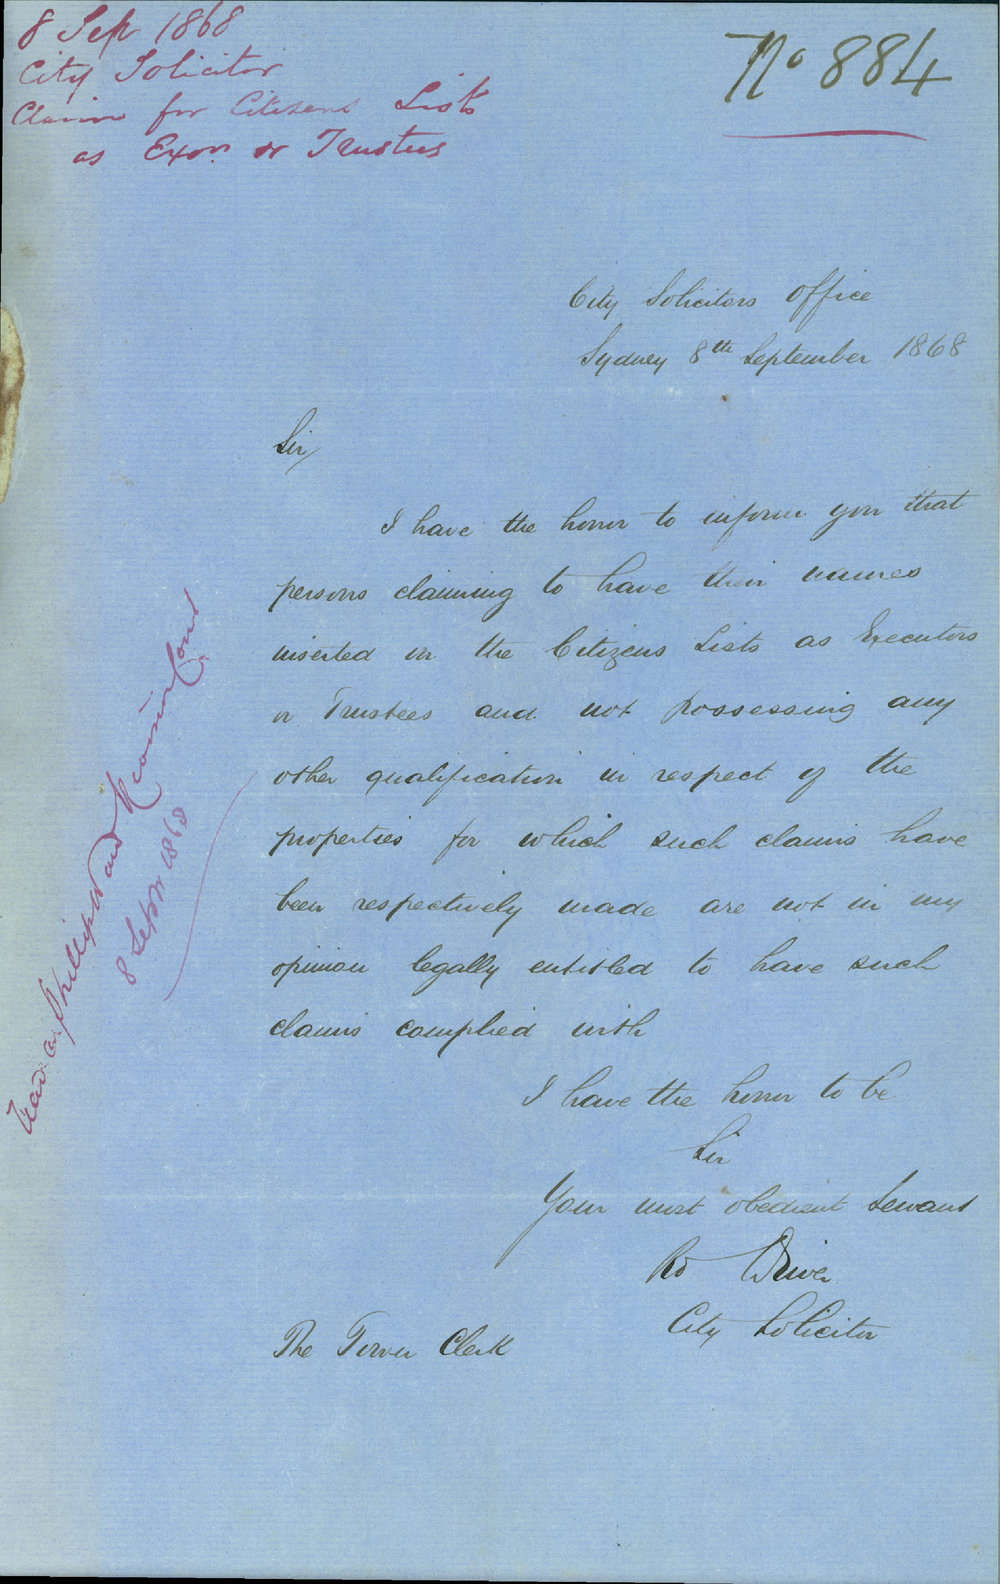 8 Sep 1868
City Solicitor
Claim for Citizens Lists
as Exors or Trustees
No 884
City Solicitors Office
Sydney 8th September 1868
Sir,
I have the honor to inform you that
persons claiming to have their names
inserted in the Citizens Lists as Executors
or Trustees and not possessing any
other qualification in respect of the
properties for which such claims have
been respectively made are not in my
opinion legally entitled to have such
claims complied with
I have the honor to be
Sir
Your most obedient Servant
Rd Driver
City Solicitor
The Town Clerk
Phillip Ward Court
8 Sepbr 1868